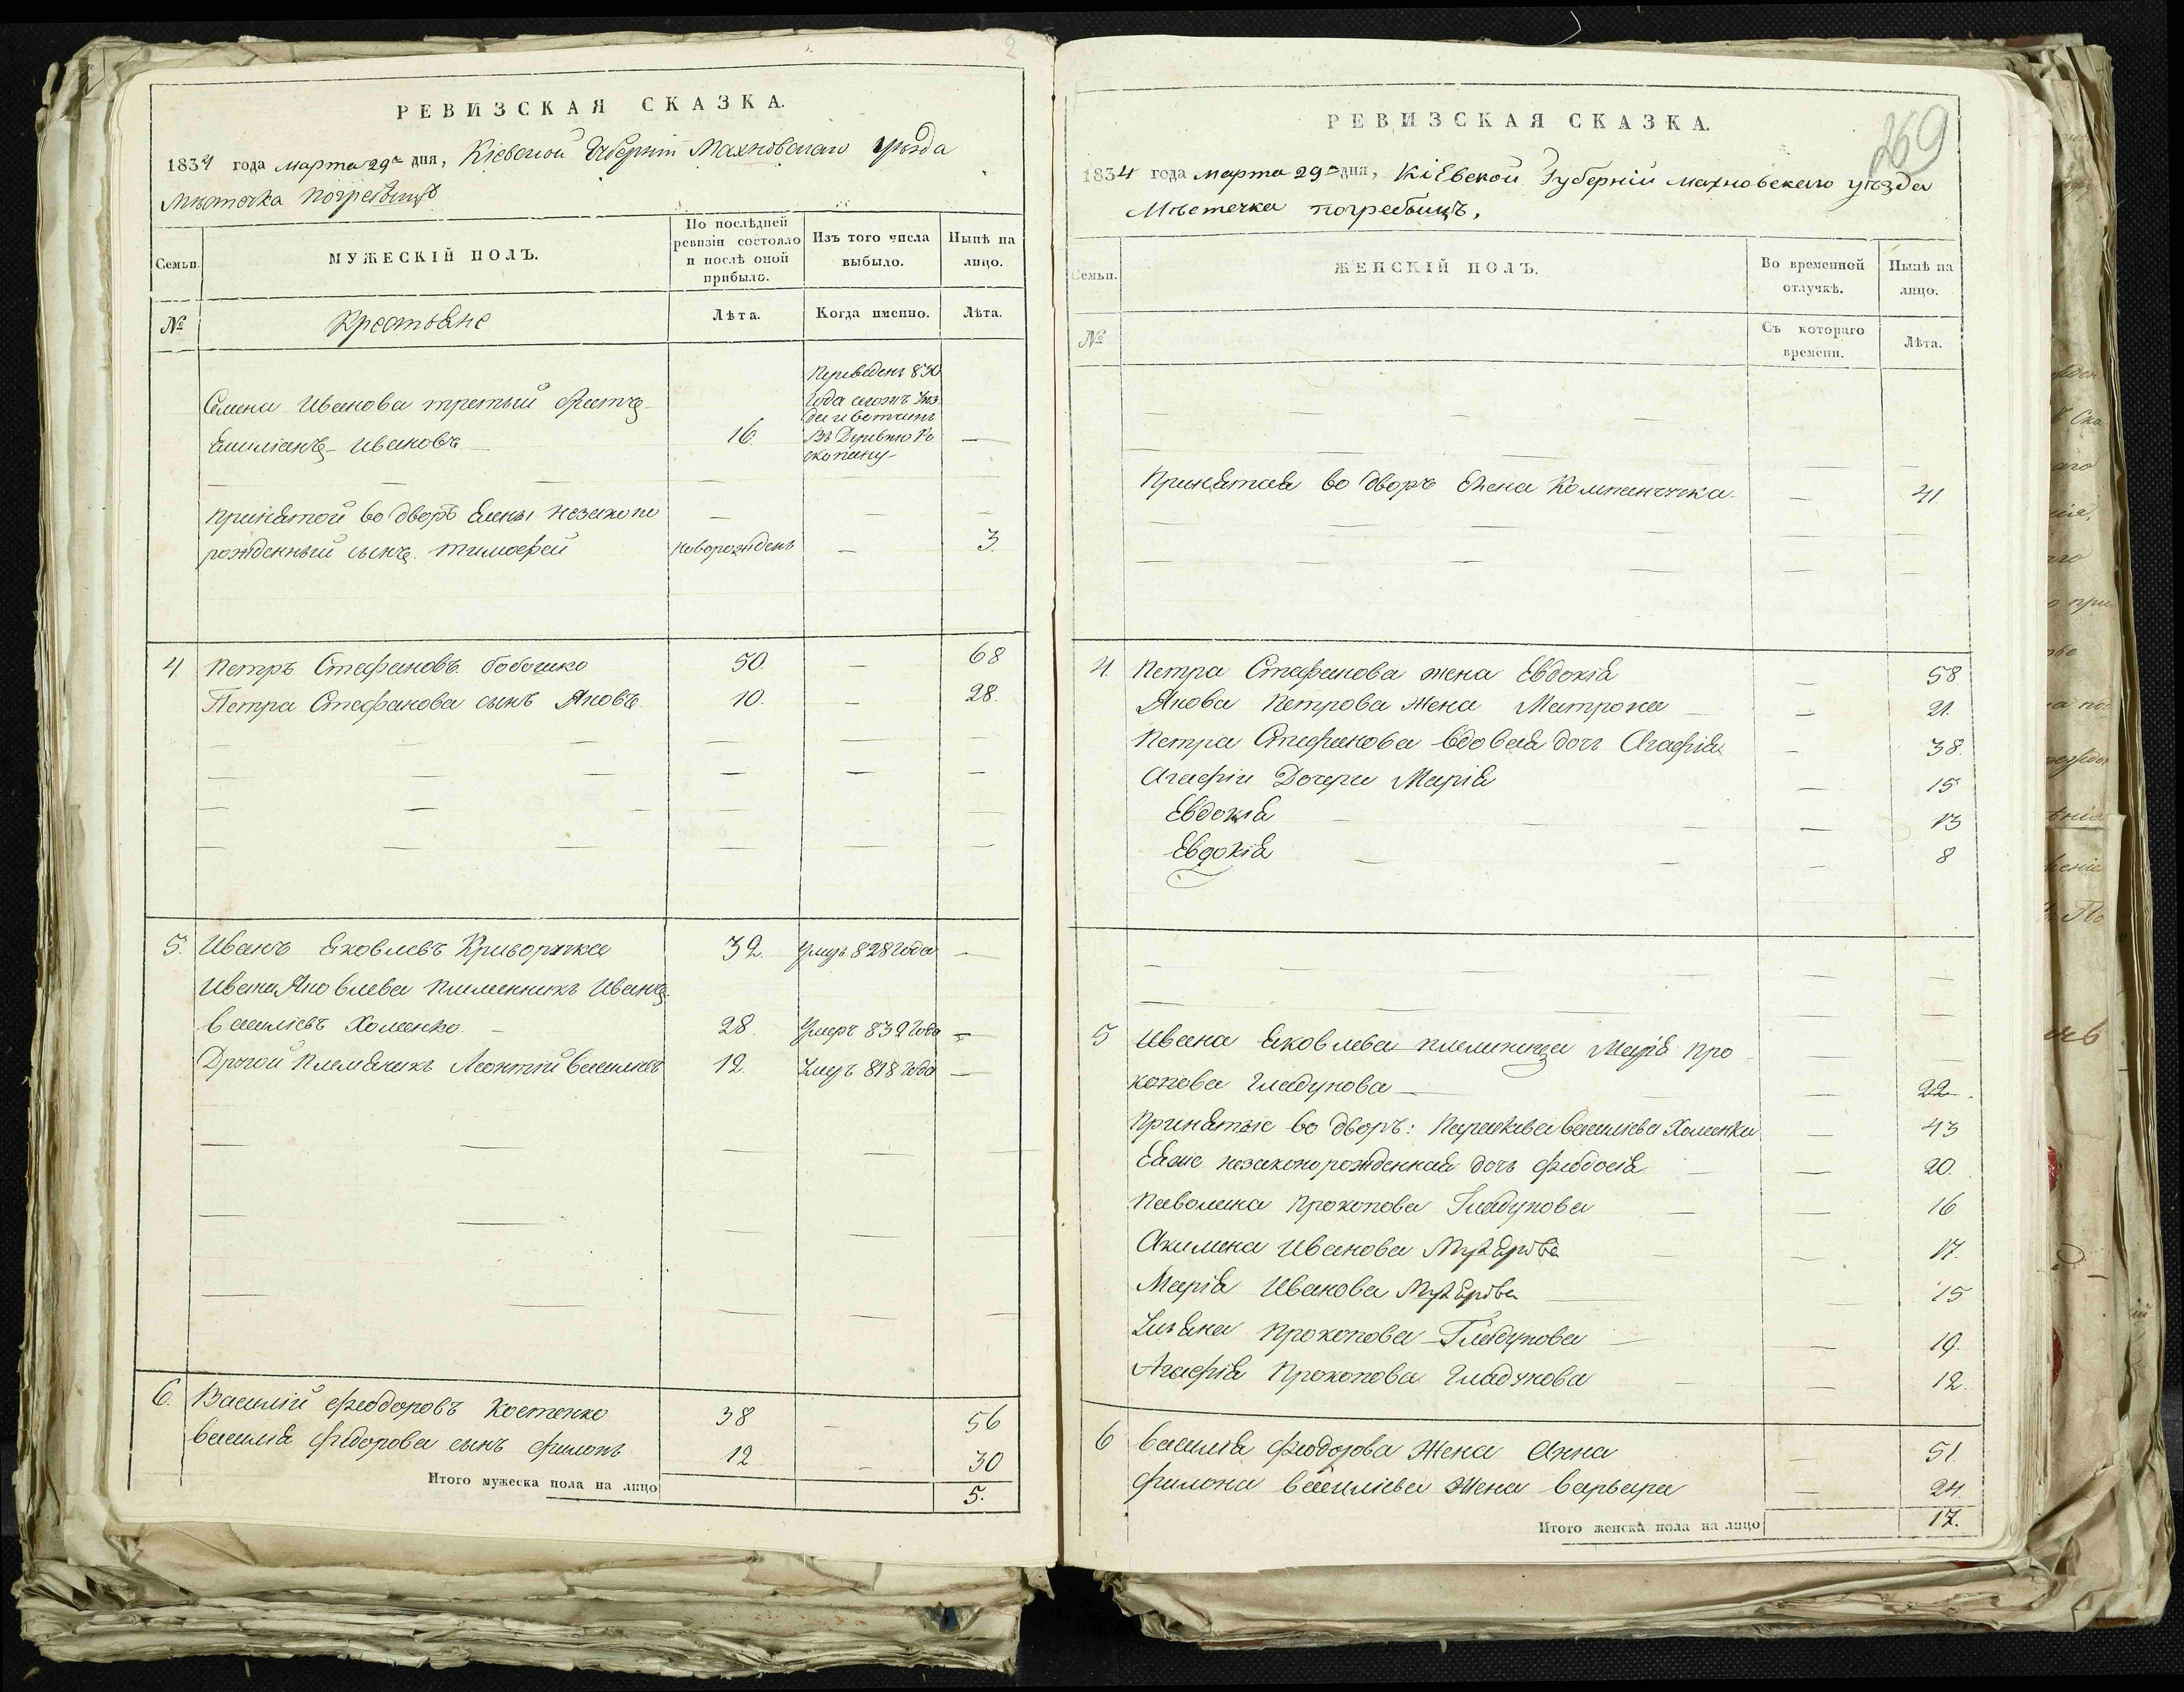 2
РЕВИЗСКАЯ СКАЗКА.
1834 года марта 29 дня, Кіевской Губерніи Махновскаго уѣзда
Мѣстечка Погребищъ
Семьи.
МУЖЕСКІЙ ПОЛЪ.
По послѣдней ревизіи состояло и послѣ оной прибыло.
Изъ того числа выбыло.
Нынѣ на лицо.
№
Крестьяне
Лѣта.
Когда именно.
Лѣта.
Переведенъ 830
Семена Иванова третый братъ
года
Емиліанъ Ивановъ — 16
Въ Деревню Ро
скопану —
принятой во дворъ Елены незаконо — — —
рожденный сынъ Тимофей новорожденъ — 3.
4 Петръ Стефановъ бобошко 50. — 68
Петра Стефанова сынъ Яковъ 10. — 28.
5. Иванъ Яковлевъ Криворучка 32. умеръ 828 года —
Ивана Яковлева племенникъ Иванъ
василіевъ Хоменко — 28. умеръ 832 года —
Другой племяникъ Леонтій василиевъ 12. умеръ 818 года —
6. Василій феодоровъ Костенко 38 — 56
василія федорова сынъ филонъ 12 — 30
Итого мужеска пола на лицо 5.
269
РЕВИЗСКАЯ СКАЗКА.
1834 года марта 29 дня, Кіевской Губерніи махновскаго уѣзда
Мѣстечка погребищъ,
Семьи.
ЖЕНСКІЙ ПОЛЪ.
Во временной отлучкѣ.
Нынѣ на лицо.
№
Съ котораго времени.
Лѣта.
Принятая во дворъ Елена Компанчучка — 41
4. Петра Стефанова жена Евдокія — 58
Якова Петрова жена Матрона — 21.
Петра Стефанова вдовая дочь Агафія — 38.
Агафіи Дочери Марія — 15
Евдокія — 13
Евдокія — 8
5 Ивана Яковлева племеница Марія Про
копова Гладунова — 22.
Принятые во дворъ: Параскева василіева Хоменка — 43
Еяже незаконорожденная дочь феодосія — 20.
Паволина Прокопова Гладунова — 16
Акилина Иванова — 17.
Марія Иванова — 15
Ульяна Прокопова Гладунова — 19.
Агафія Прокопова Гладунова — 12.
6 василія феодорова Жена Анна — 51
филона василіева Жена варвара — 24.
Итого женска пола на лицо 17.